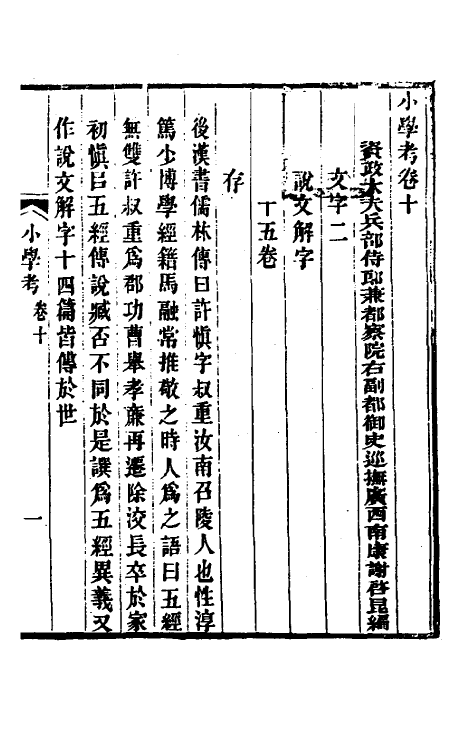 小學考卷十
資政大夫兵部侍郎兼都察院右副都御史巡撫廣西南康謝啓昆編
文字二
說文解字
十五卷
存
後漢書儒林傳曰許愼字叔重汝南召陵人也性淳
篤少博學經籍馬融常推敬之時人爲之語曰五經
無雙許叔重爲郡功曹舉孝廉再遷除洨長卒於家
初愼㠯五經傳說臧否不同於是譔爲五經異義又
作說文解字十四篇皆傳於世
小學考 卷十 一